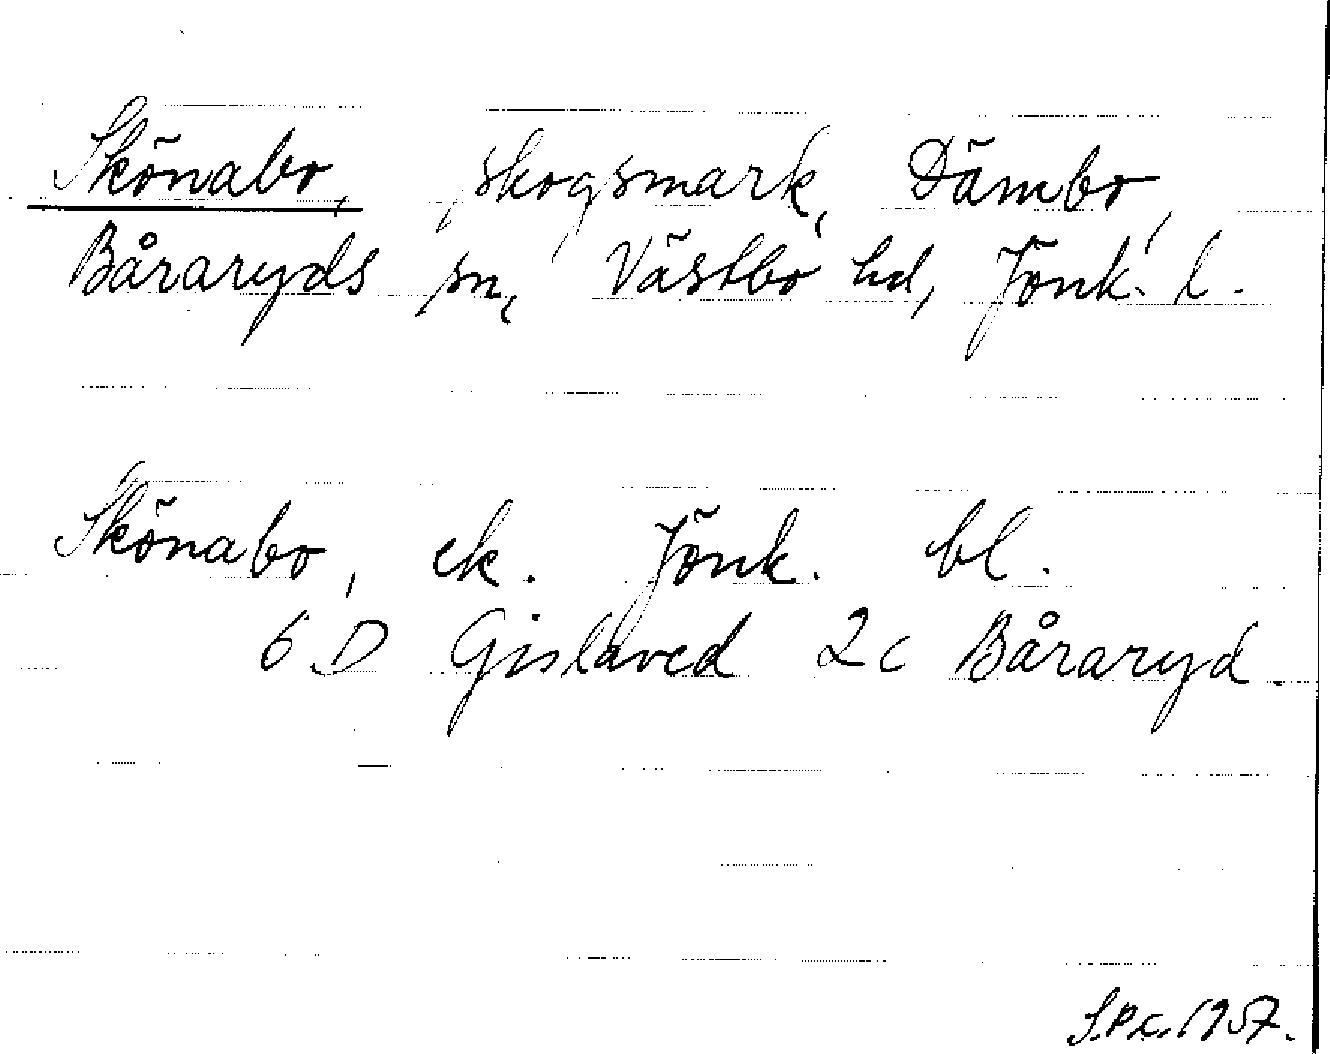 Skönabo, skogsmark, Dämbo,
Båraryds sn, Västbo hd, Jönk. l.
Skönabo, ek. Jönk. bl.
6 D Gislaved 2c Båraryd.
S.P.C. 1957.